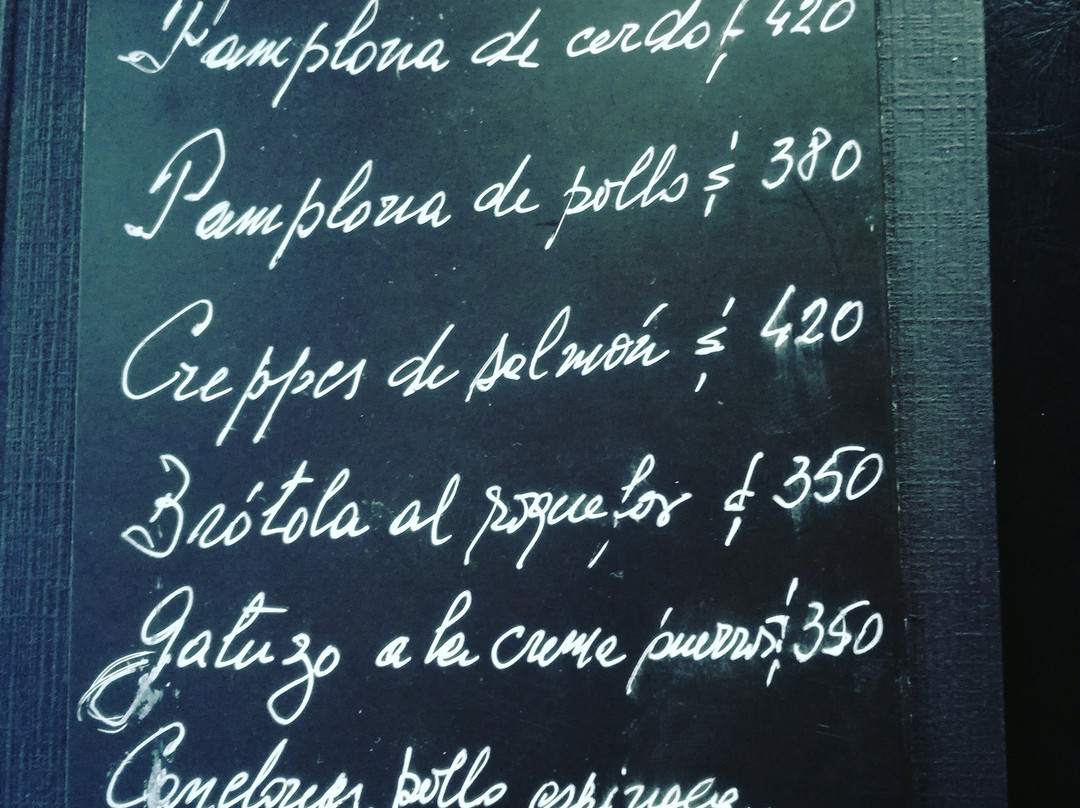 Pamplona de cerdo $ 420
Pamplona de pollo $ 380
Creppes de salmón $ 420
Brótola al roquefor $ 350
Gatuzo a la creme puerros $ 350
Canelones pollo espinaca